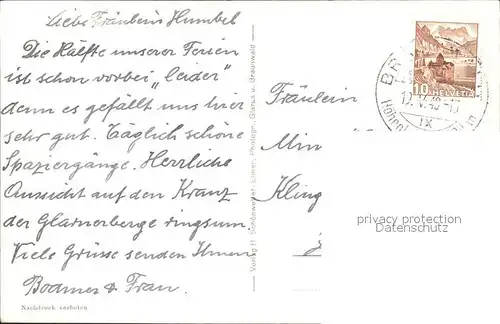 Liebe Fräulein Humbel
Die Hälfte unserer Ferien
ist schon vorbei "leider"
denn es gefällt uns hier
sehr gut. Täglich schöne
Spaziergänge. Herrliche
Aussicht auf den Kranz
der Glarnerberge ringsum.
Viele Grüsse senden Ihnen
Bodmer & Frau.
Nachdruck verboten
Verlag H. Schönwetter-Elmer, Photogr., Glarus u. Braunwald
Fräulein
Min
Kling
privacy protection
Datenschutz
10 HELVETIA
BR
IX
Höhen